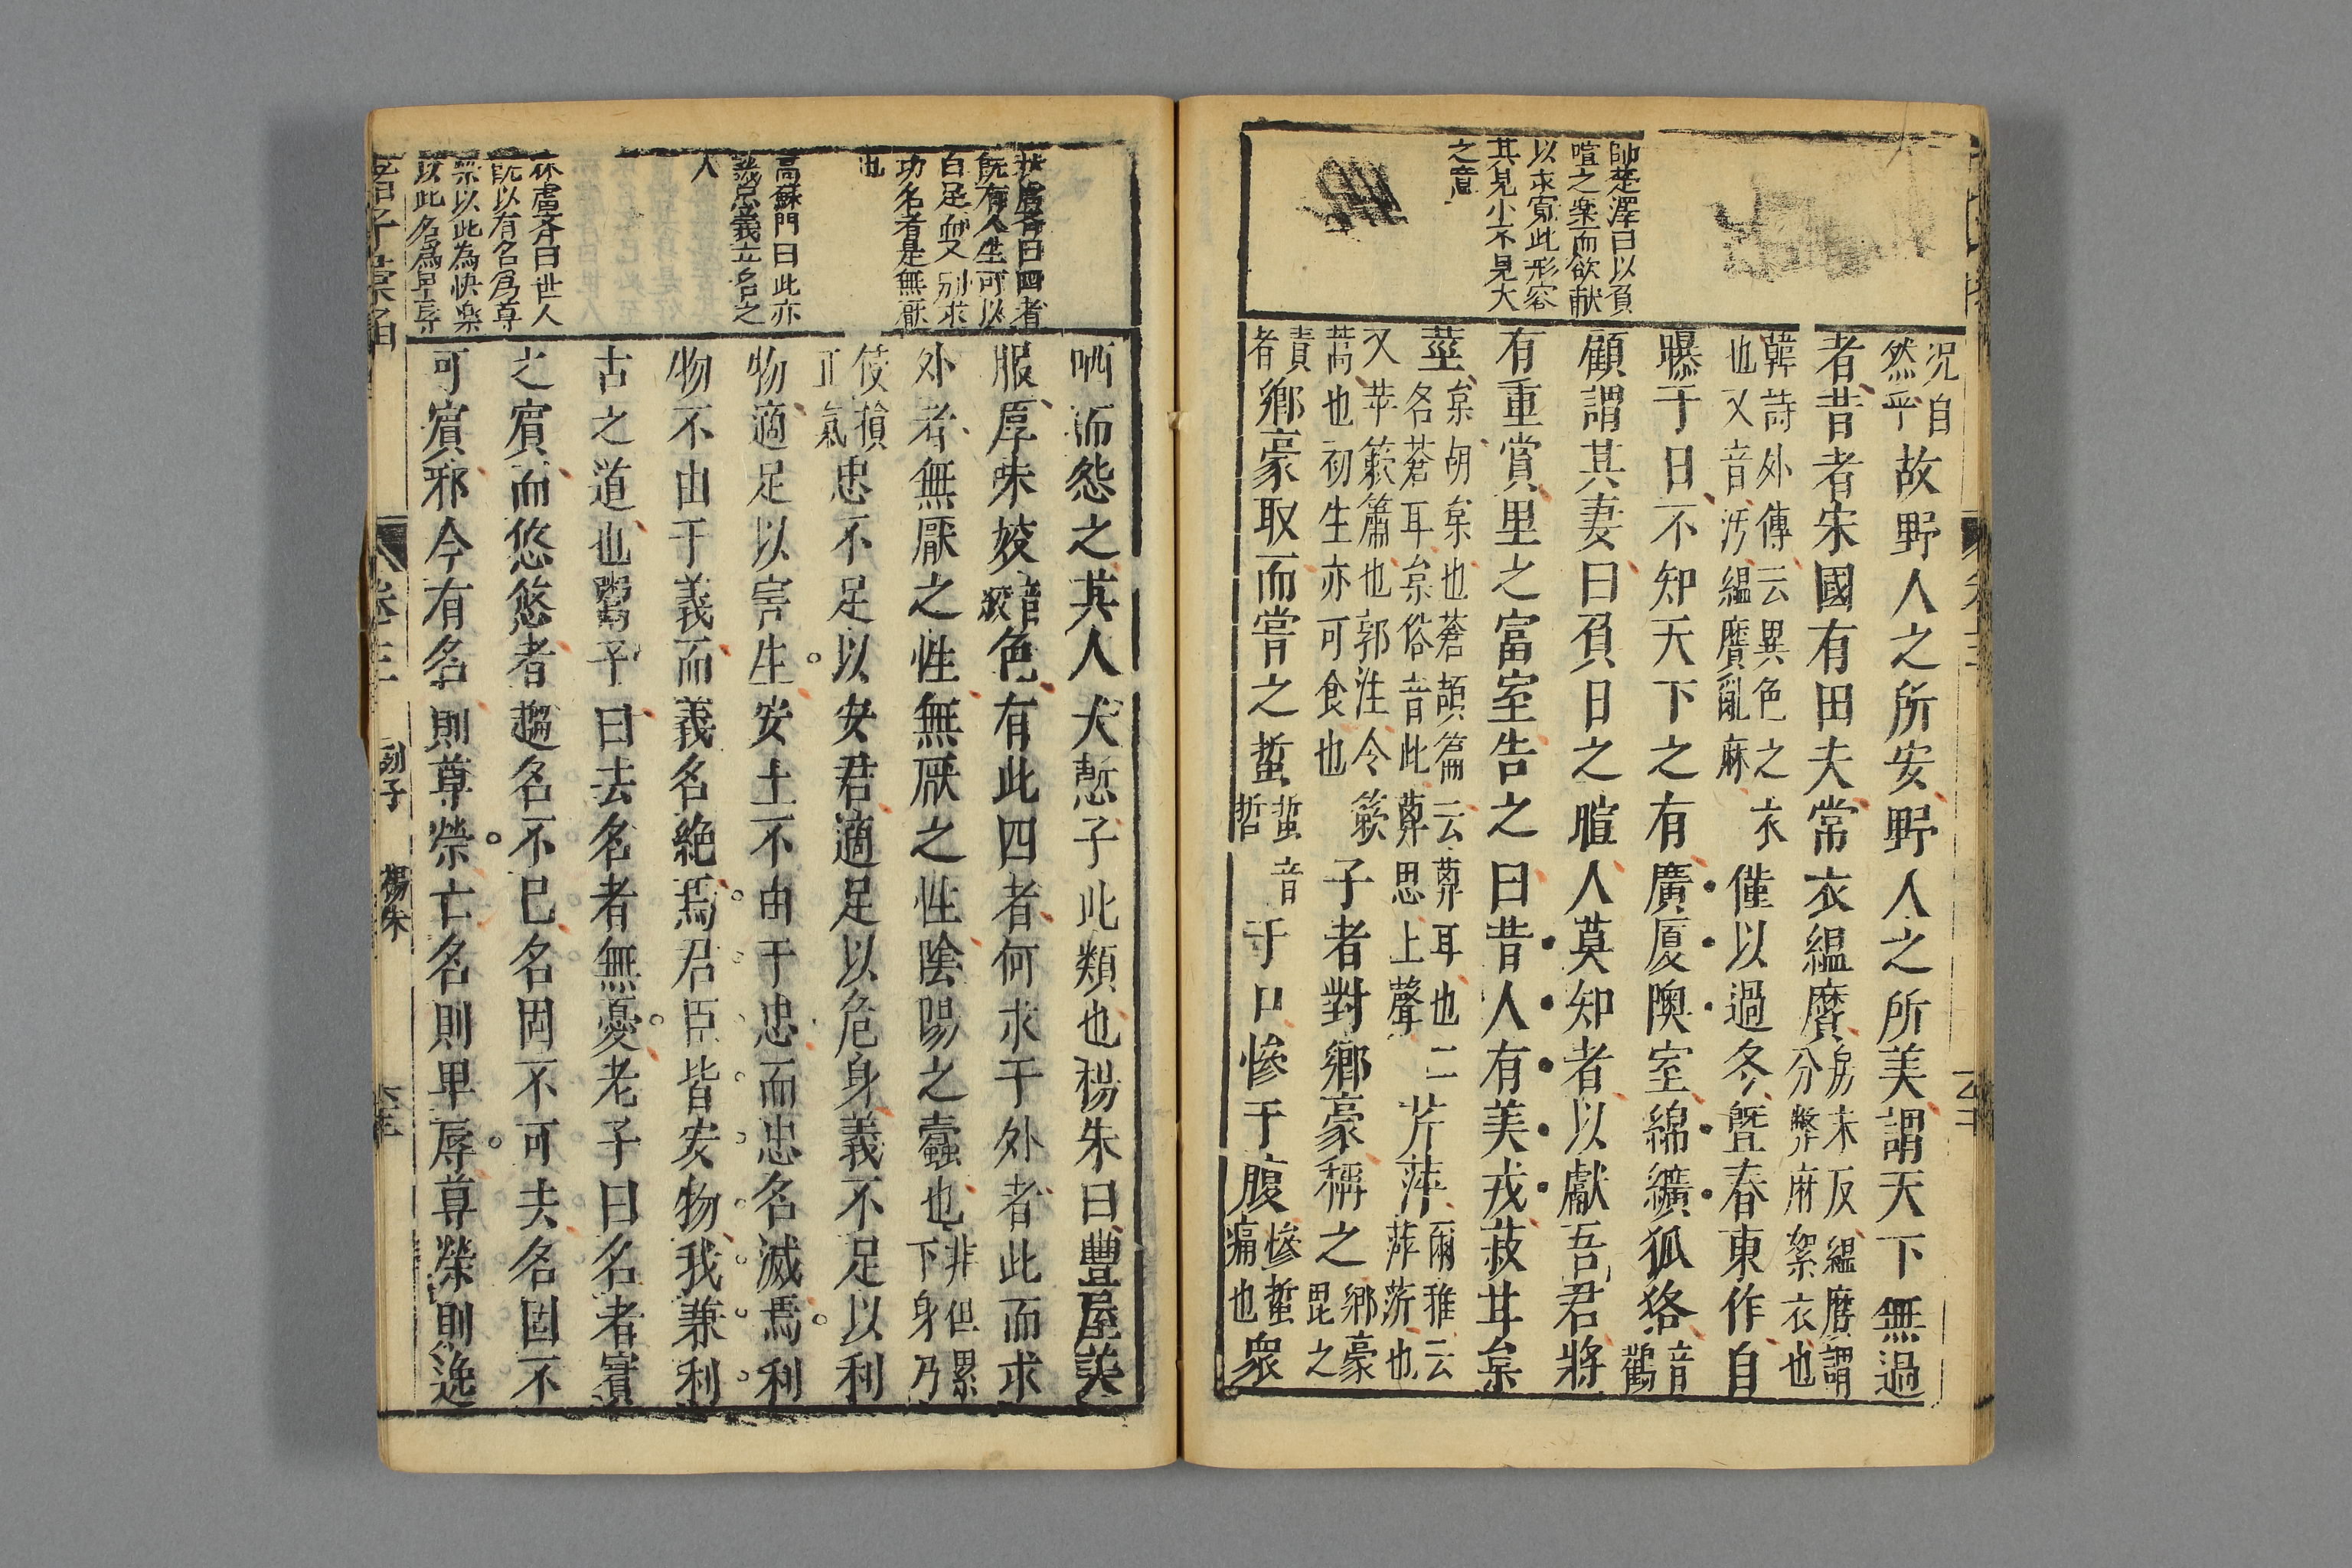 帥楚澤曰以負
暄之樂而欲献
以求寬此形容
其見小不見大
之意
況自
然平
故野人之所安野人之所美謂天下無過
者昔者宋國有田夫常衣縕黂
房未反縕黂謂
分弊麻絮衣也
韓詩外傳云異色之衣
也又音汚縕黂亂麻
僅以過冬曁春東作自
曝于日不知天下之有廣厦隩室綿纊狐狢
音
鸛
顧謂其妻曰負日之暄人莫知者以獻吾君將
有重賞里之富室告之曰昔人有美戎菽甘枲
莖
枲胡枲也蒼頡篇云葞耳也二
名蒼耳枲俗音此葞思上聲
芹萍
爾雅云
萍蓱也
又苹簌簫也郭注今簌
蒿也初生亦可食也
子者對鄉豪稱之
鄉豪
毘之
責
者
鄉豪取而嘗之蜇
蜇音
哲
于口慘于腹
慘蜇
痛也
衆
林鬳斉曰四者
既有人生可以
自足而又別求
功名者是無厭
也
高蘇門曰此亦
議忠義立名之
人
林鬳斉曰世人
既以有名爲尊
榮以此為快樂
以此名爲卑辱
哂而怨之其人大慙子此類也楊朱曰豐屋美
服厚味姣
音
狡
色有此四者何求于外者此而求
外者無厭之性無厭之性陰陽之蠹也
非但累
下身乃
使損
正氣
忠不足以安君適足以危身義不足以利
物適足以害生安上不由于忠而忠名滅焉利
物不由于義而義名絶焉君臣皆安物我兼利
古之道也鬻子曰去名者無憂老子曰名者賓
之賓而悠悠者趨名不已名固不可夫名固不
可賓邪今有名則尊榮亡名則卑辱尊榮則逸
卷三
列子
楊朱